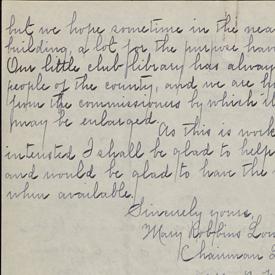 but we hope sometime in the near
building, a lot for the purpose hav
Our little club library has alway
people of the county, and we are ho
from the commissioners by which it
may be enlarged.
As this is work
interested I shall be glad to help
and would be glad to have the
when available.
Sincerely yours,
Mary Robbins Lon
Chairman L